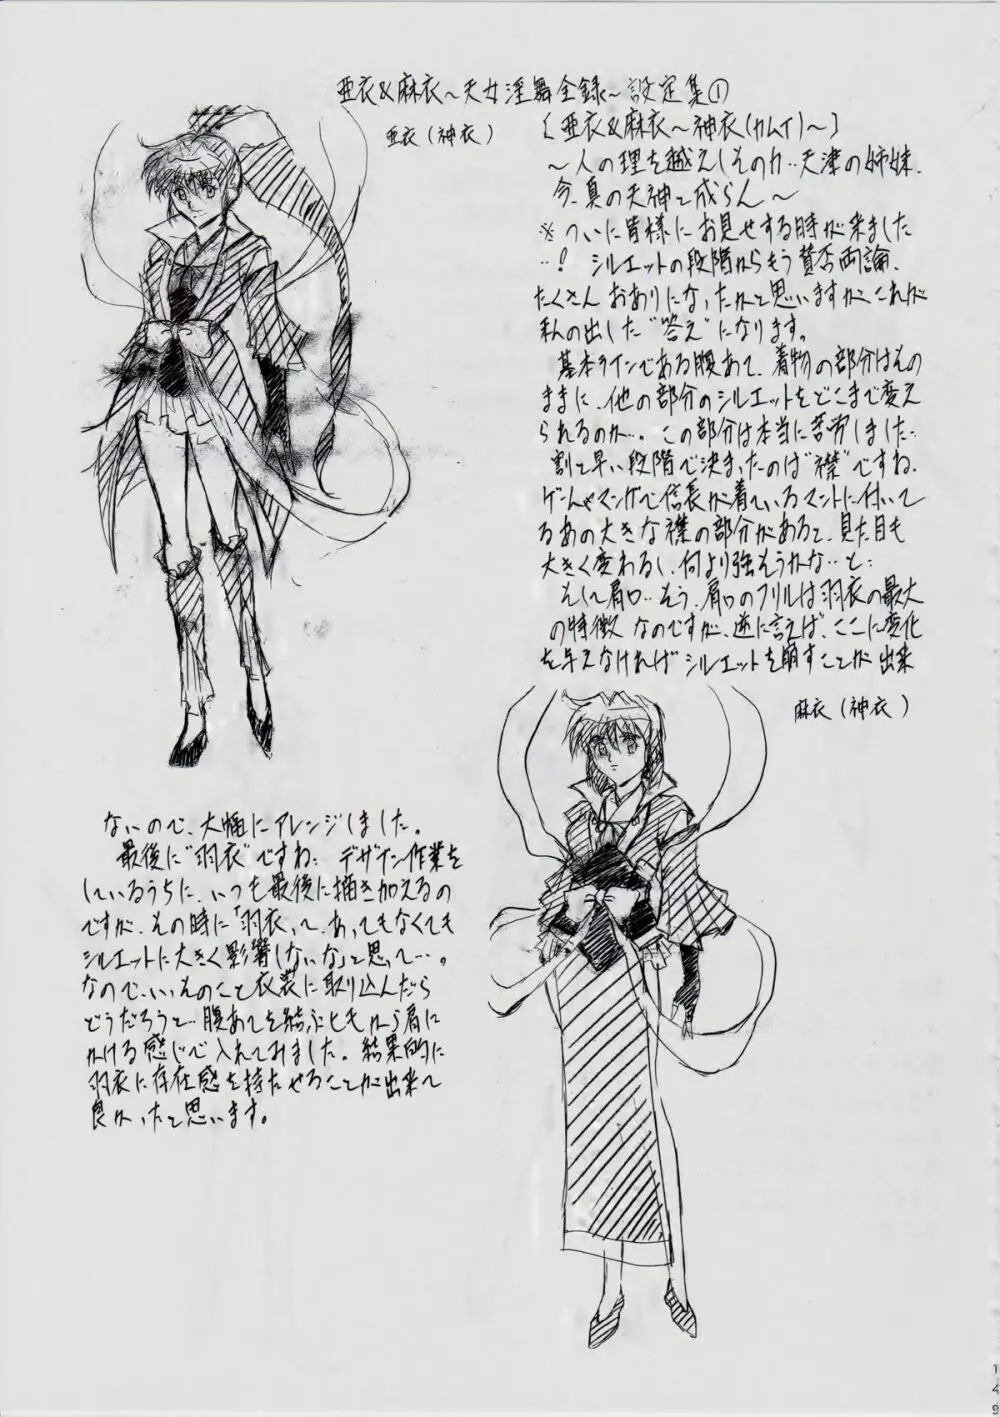 亜衣&麻衣～天女淫舞全録～設定集①
亜衣(神衣)
[亜衣&麻衣～神衣(カムイ)～]
～人の理を越えしその力‥天津の姉妹、
今、真の天神と成らん～
※ついに皆様にお見せする時が来ました
‥! シルエットの段階からもう賛否両論、
たくさんおありになったかと思いますが、これが
私の出した“答え”になります。
基本ラインである腹あて、着物の部分はその
ままに、他の部分のシルエットをどこまで変え
られるのか…。この部分は本当に苦労しました‥
割と早い段階で決まったのは“襟”ですね。
ゲームやマンガで信長が着ているマントに付いて
るあの大きな襟の部分があると、見た目も
大きく変わるし、何より強そうかな‥と‥
そして肩口‥そう、肩口のフリルは羽衣の最大
の特徴なのですが、逆に言えば、ここに変化
を与えなければシルエットを崩すことが出来
ないので、大幅にアレンジしました。
最後に“羽衣”ですね‥デザイン作業を
しているうちに、いつも最後に描き加えるの
ですが、その時に「羽衣って、あってもなくても
シルエットに大きく影響しないな」と思って…。
なので、いっそのこと衣装に取り込んだら
どうだろうと‥腹あてを結ぶヒモから肩に
かける感じで入れてみました。結果的に
羽衣に存在感を持たせることが出来て
良かったと思います。
麻衣(神衣)
149